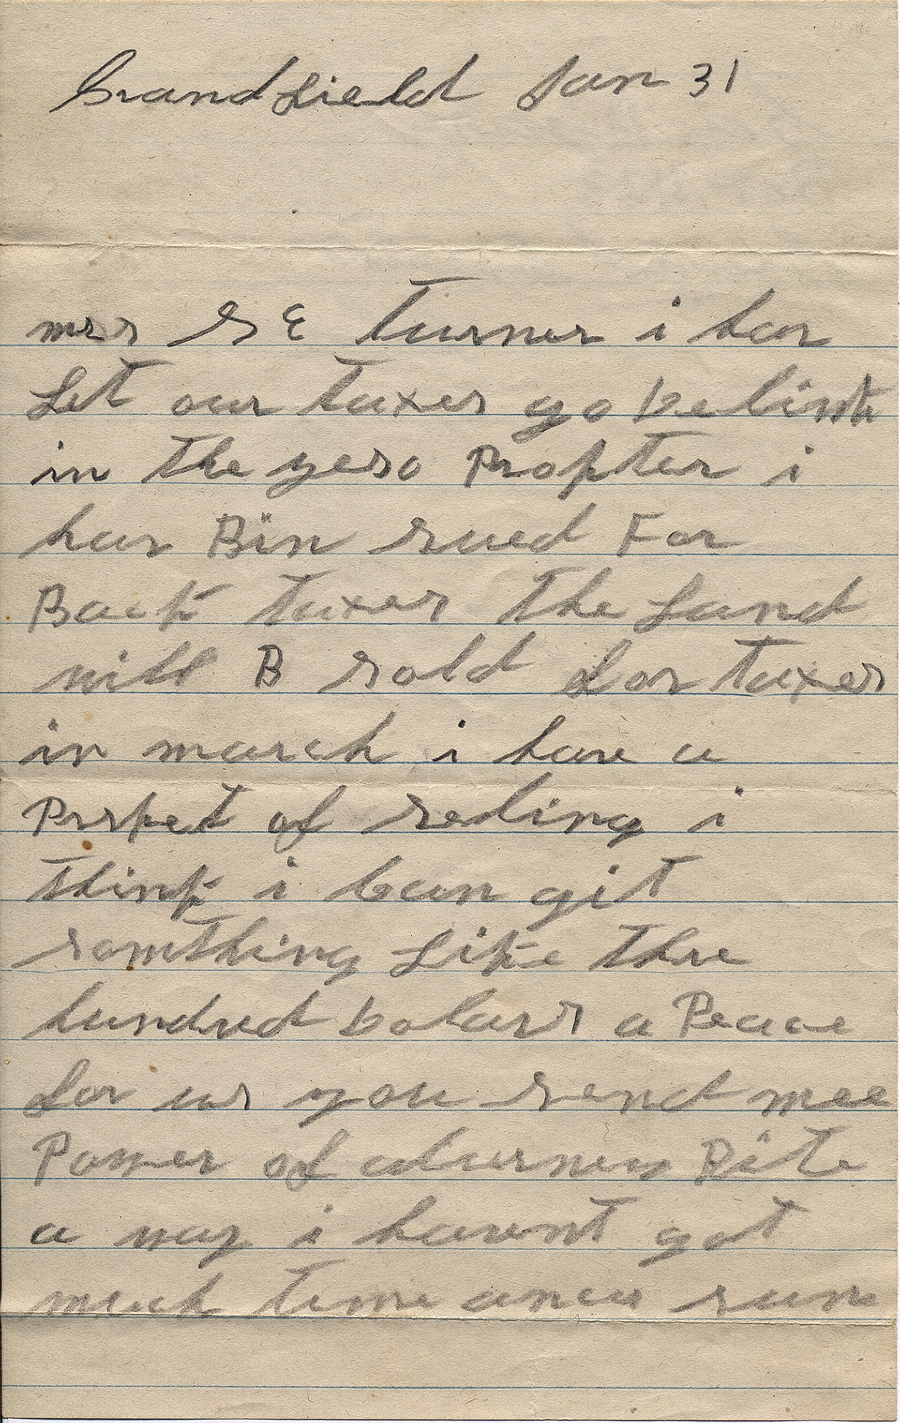 Grandfield Jan 31
mrs G E Turner i has
Let our taxes go be hind
in the yeso Propter i
has Bin sued For
Back taxes the Land
will B sold for taxes
in march i have a
Prspect of seling i
think i can git
somthing Like thre
hundred dolars a Peace
for us you send mee
Power of aturney Rite
a way i havent got
much time